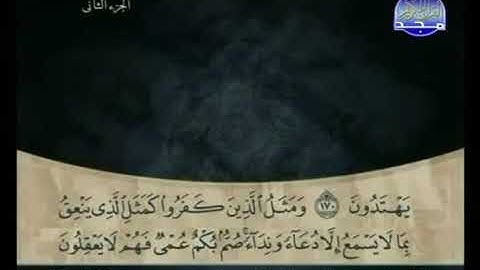 الجزء الثاني
القرآن الكريم
مجد
يَهْتَدُونَ ١٧٠ وَمَثَلُ الَّذِينَ كَفَرُوا كَمَثَلِ الَّذِي يَنْعِقُ
بِمَا لَا يَسْمَعُ إِلَّا دُعَاءً وَنِدَاءً صُمٌّ بُكْمٌ عُمْيٌ فَهُمْ لَا يَعْقِلُونَ